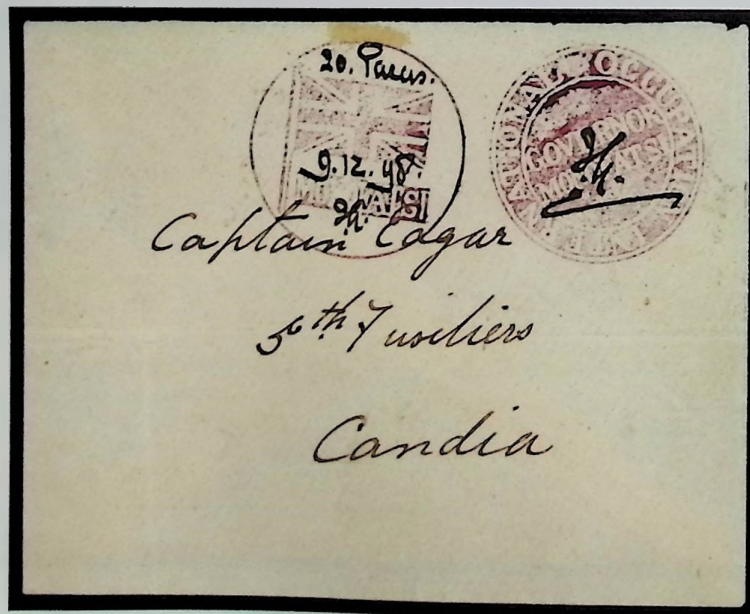 20. Paras.
9.12.98.
MALATSI
INTERNATIONAL OCCUPATION
GOVERNOR
Captain Cagar
5th Fusiliers
Candia